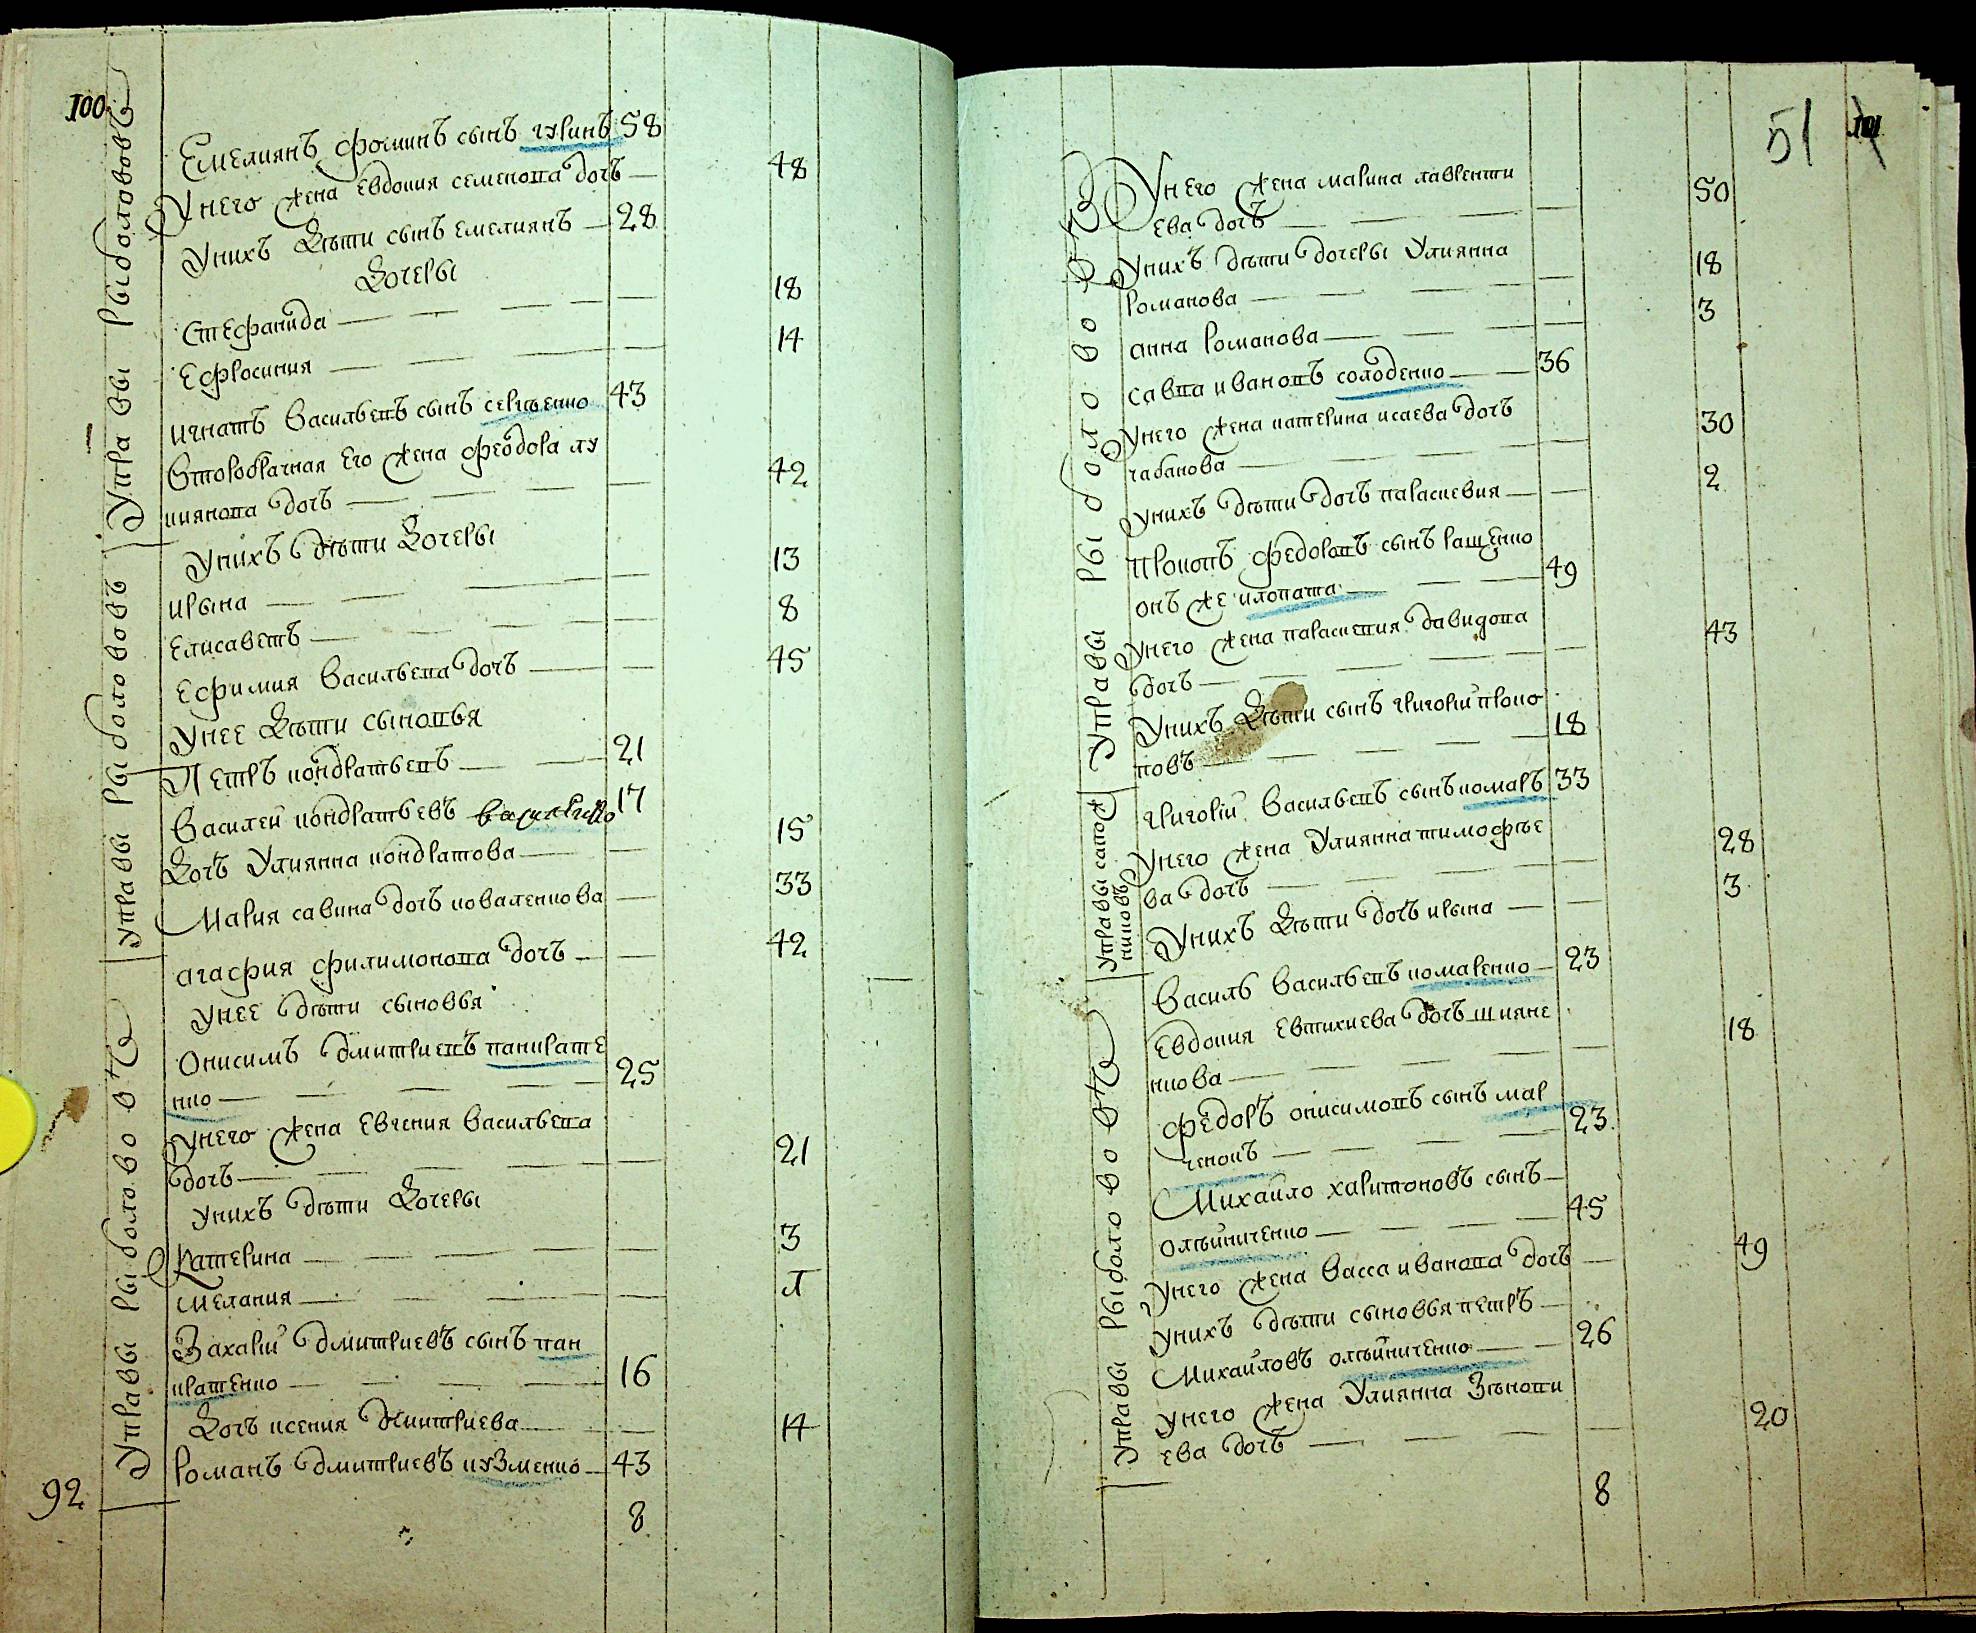 100
Емелиянъ Фоминъ сынъ гуринъ 58
У него жена Евдокия семенова дочъ 48
У нихъ дѣти сынъ емелиянъ 28
дочеры
Стефанида 18
Ефросиния 14
игнатъ Васильевъ сынъ сергѣенко 43
Второбрачная Его жена феодора лу
киянова дочь 42
У нихъ дѣти дочеры
ирына 13
Елисаветъ 8
Ефимия Васильева дочъ 45
У нее дѣти сыновья
Петръ кондратьевъ 21
Василей кондратьевъ 17
Дочъ Улиянна кондратова 15
Мария савина дочъ коваленкова 33
агафия филимонова дочъ 42
У нее дѣти сыновья
Онисимъ дмитриевъ панкрате
нко 25
У него жена Евгения Васильева
дочъ 21
У нихъ дѣти дочеры
Катерина 3
Мелания
Захарій дмитриевъ сынъ пан
кратенко 16
Дочъ ксения Дмитриева 14
Романъ дмитриевъ кузменко 43
92
8
Управы Рыболововъ
Управы Рыболововъ
Управы Рыболововъ
51
У него жена марина лавренти
ева дочъ 50
У нихъ дѣти дочеры Улиянна
Романова 18
анна Романова 3
савва ивановъ солоденко 36
У него жена катерина исаева дочъ
чабанова 30
У нихъ дѣти дочъ параскевия 2
Прокопъ федоровъ сынъ ращенко
онъ же илопата 49
У него жена параскевия давидова
дочъ 43
У нихъ дѣти сынъ григорій проко
повъ 18
григорій Васильевъ сынъ комаръ 33
У него жена Улиянна тимофѣе
ва дочъ 28
У нихъ дѣти дочъ ирына 3
Василь Васильевъ комаренко 23
Евдокия Евтихиева дочъ шкиле
нкова 18
федоръ онисимовъ сынъ мар
ченокъ 23
Михайло харитоновъ сынъ
олѣйниченко 45
У него жена Васса иванова дочъ 49
У нихъ дѣти сыновья петръ
Михайловъ олѣйниченко 26
У него жена Улиянна Зѣнови
ева дочъ 20
8
Управы Рыболововъ
Управы сапож
никовъ
Управы Рыболововъ